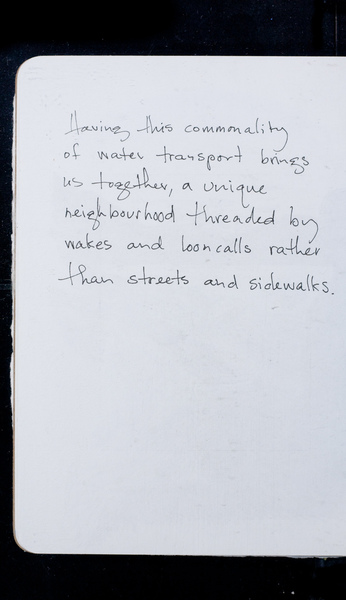 Having this commonality
of water transport brings
us together, a unique
neighbourhood threaded by
wakes and loon calls rather
than streets and sidewalks.